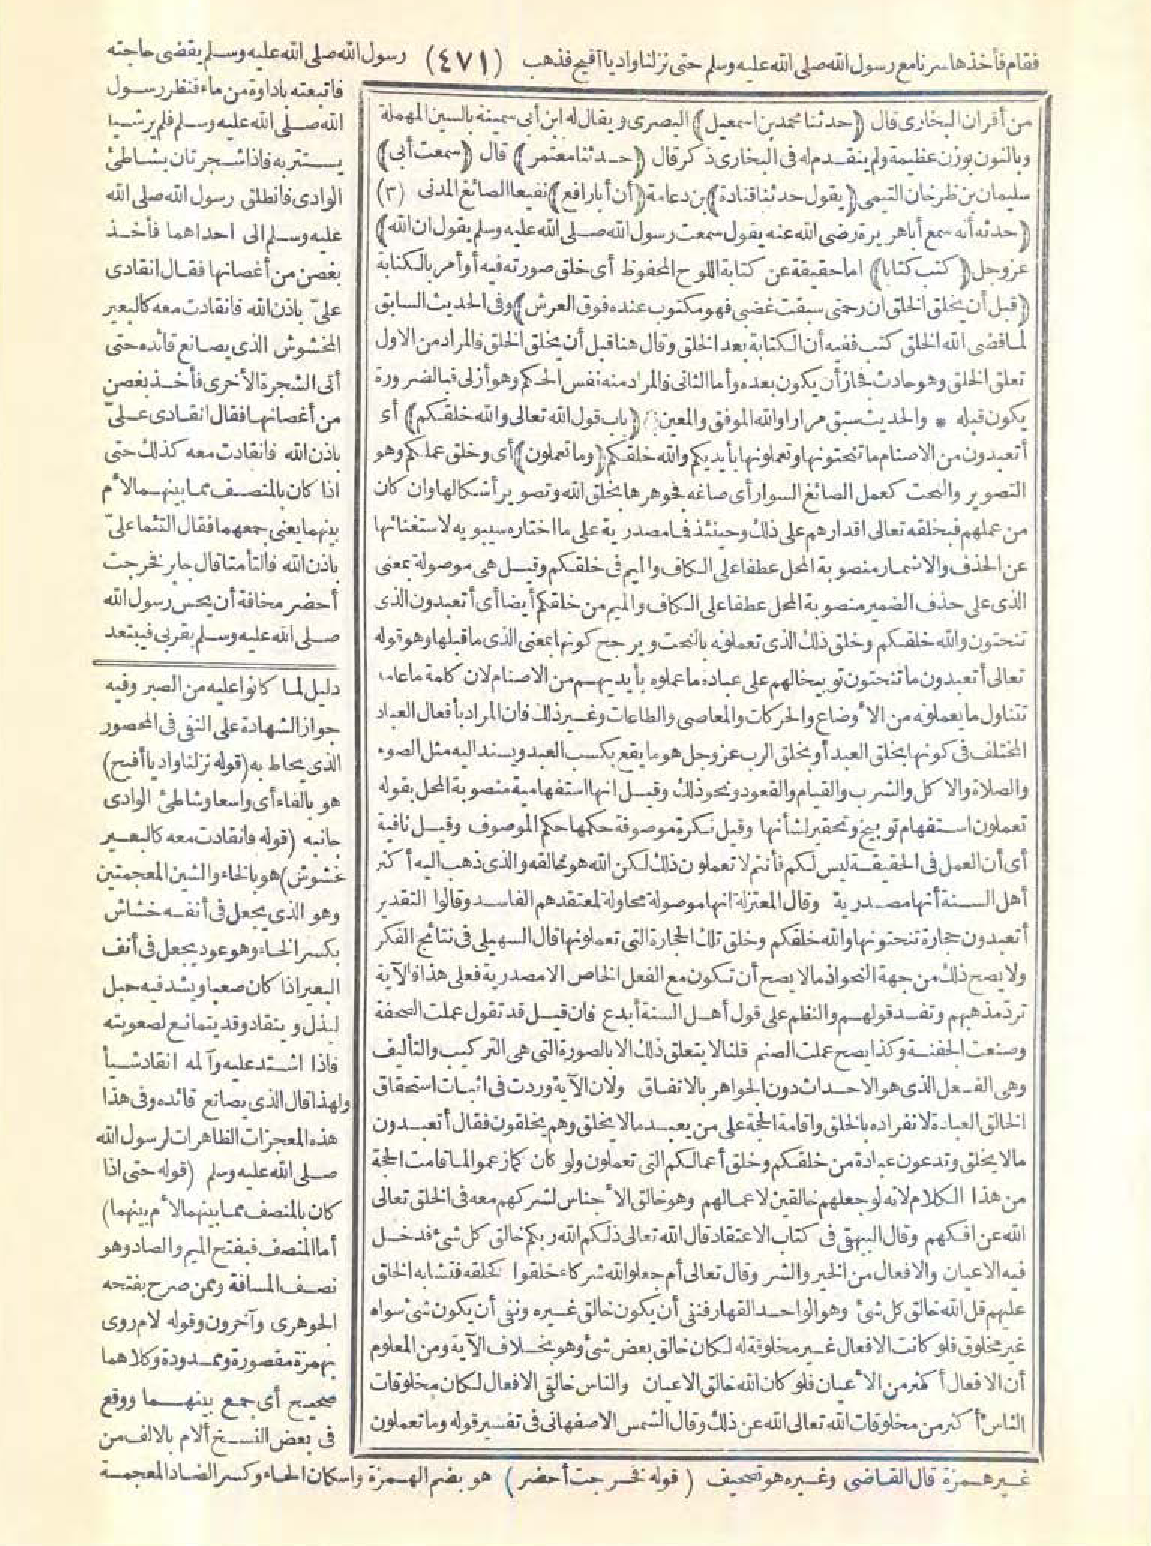 فقام فأخذها سرنا مع رسول الله صلى الله عليه وسلم حتى نزلنا واديا أفيح فذهب (٤٧١) رسول الله صلى الله عليه وسلم يقضى حاجته
فاتبعته باداوة من ماء فنظر رسول
الله صلى الله عليه وسلم فلم ير شيأ
يستتر به فاذا شجرتان بشاطئ
الوادى فانطلق رسول الله صلى الله
عليه وسلم الى احداهما فأخذ
بغصن من أغصانها فقال انقادى
علىّ باذن الله فانقادت معه كالبعير
المخشوش الذى يصانع قائده حتى
أتى الشجرة الأخرى فأخذ بغصن
من أغصانها فقال انقادى علىّ
باذن الله فانقادت معه كذلك حتى
اذا كان بالمنصف مما بينهما لأم
بينهما يعنى جمعهما فقال التئما علىّ
باذن الله فالتأمتا قال جابر فخرجت
أحضر مخافة أن يحس رسول الله
صلى الله عليه وسلم بقربى فيبتعد
من أقران البخارى قال (حدثنا محمد بن اسمعيل) البصرى ويقال له ابن أبى سمينة بالسين المهملة
وبالنون بوزن عظيمة ولم يتقدم له فى البخارى ذكر قال (حدثنا معتمر) قال (سمعت أبى)
سليمان بن طرخان التيمى (يقول حدثنا قتادة) بن دعامة (أن أبا رافع) نفيعا الصائغ المدنى (٣)
(حدثه أنه سمع أبا هريرة رضى الله عنه يقول سمعت رسول الله صلى الله عليه وسلم يقول ان الله)
عز وجل (كتب كتابا) اما حقيقة عن كتابة اللوح المحفوظ أى خلق صورته فيه أو أمر بالكتابة
(قبل أن يخلق الخلق ان رحمتى سبقت غضبى فهو مكتوب عنده فوق العرش) وفى الحديث السابق
لما قضى الله الخلق كتب ففيه أن الكتابة بعد الخلق وقال هنا قبل أن يخلق الخلق فالمراد من الاول
تعلق الخلق وهو حادث فجاز أن يكون بعده وأما الثانى فالمراد منه نفس الحكم وهو أزلى فبالضرورة
يكون قبله * والحديث سبق مرارا والله الموفق والمعين (باب قول الله تعالى والله خلقكم) أى
أتعبدون من الاصنام ما تنحتونها وتعملونها بأيديكم والله خلقكم (وما تعملون) أى وخلق عملكم وهو
التصوير والنحت كعمل الصائغ السوار أى صاغه فجوهرها بخلق الله وتصوير أشكالها وان كان
من عملهم فبخلقه تعالى اقدارهم على ذلك وحينئذ فما مصدرية على ما اختاره سيبويه لاستغنائها
عن الحذف والاضمار منصوبة المحل عطفا على الكاف والميم فى خلقكم وقيل هى موصولة بمعنى
الذى على حذف الضمير منصوبة المحل عطفا على الكاف والميم من خلقكم أيضا أى أتعبدون الذى
تنحتون والله خلقكم وخلق ذلك الذى تعملونه بالنحت ويرجح كونها بمعنى الذى ما قبلها وهو قوله
تعالى أتعبدون ما تنحتون توبيخا لهم على عبادة ما عملوه بأيديهم من الاصنام لان كلمة ما عامة
تتناول ما يعملونه من الأوضاع والحركات والمعاصى والطاعات وغير ذلك فان المراد بأفعال العباد
المختلف فى كونها بخلق العبد أو بخلق الرب عز وجل هو ما يقع بكسب العبد ويسند اليه مثل الصوم
والصلاة والاكل والشرب والقيام والقعود ونحو ذلك وقيل انها استفهامية منصوبة المحل بقوله
تعملون استفهام توبيخ وتحقير لشأنها وقيل نكرة موصوفة حكمها حكم الموصوف وقيل نافية
أى أن العمل فى الحقيقة ليس لكم فأنتم لا تعملون ذلك لكن الله هو خالقه والذى ذهب اليه أكثر
أهل السنة أنها مصدرية وقال المعتزلة انها موصولة محاولة لمعتقدهم الفاسد وقالوا التقدير
أتعبدون حجارة تنحتونها والله خلقكم وخلق تلك الحجارة التى تعملونها قال السهيلى فى نتائج الفكر
ولا يصح ذلك من جهة النحو اذ ما لا يصح أن تكون مع الفعل الخاص الا مصدرية فعلى هذا فالآية
ترد مذهبهم وتفسد قولهم والنظم على قول أهل السنة أبدع فان قيل قد تقول عملت الصحفة
وصنعت الجفنة وكذا يصح عملت الصنم قلنا لا يتعلق ذلك الا بالصورة التى هى التركيب والتأليف
وهى الفعل الذى هو الاحداث دون الجواهر بالاتفاق ولان الآية وردت فى اثبات استحقاق
الخالق العبادة لانفراده بالخلق واقامة الحجة على من يعبد ما لا يخلق وهم يخلقون فقال أتعبدون
ما لا يخلق وتدعون عبادة من خلقكم وخلق أعمالكم التى تعملون ولو كان كما زعموا لما قامت الحجة
من هذا الكلام لانه لو جعلهم خالقين لاعمالهم وهو خالق الأجناس لشركهم معه فى الخلق تعالى
الله عن افكهم وقال البيهقى فى كتاب الاعتقاد قال الله تعالى ذلكم الله ربكم خالق كل شئ فدخل
فيه الاعيان والافعال من الخير والشر وقال تعالى أم جعلوا لله شركاء خلقوا كخلقه فتشابه الخلق
عليهم قل الله خالق كل شئ وهو الواحد القهار فنفى أن يكون خالق غيره ونفى أن يكون شئ سواه
غير مخلوق فلو كانت الافعال غير مخلوقة له لكان خالق بعض شئ وهو بخلاف الآية ومن المعلوم
أن الافعال أكثر من الأعيان فلو كان الله خالق الاعيان والناس خالقى الافعال لكان مخلوقات
الناس أكثر من مخلوقات الله تعالى الله عن ذلك وقال الشمس الاصفهانى فى تفسير قوله وما تعملون
دليل لما كانوا عليه من الصبر وفيه
جواز الشهادة على النفى فى المحصور
الذى يحاط به (قوله نزلنا واديا أفيح)
هو بالفاء أى واسعا وشاطئ الوادى
جانبه (قوله فانقادت معه كالبعير
المخشوش) هو بالخاء والشين المعجمتين
وهو الذى يجعل فى أنفه خشاش
بكسر الخاء وهو عود يجعل فى أنف
البعير اذا كان صعبا ويشد فيه حبل
ليذل وينقاد وقد يتمانع لصعوبته
فاذا اشتد عليه وآلمه انقاد شيأ
ولهذا قال الذى يصانع قائده وفى هذا
هذه المعجزات الظاهرات لرسول الله
صلى الله عليه وسلم (قوله حتى اذا
كان بالمنصف مما بينهما لأم بينهما)
أما المنصف فبفتح الميم والصاد وهو
نصف المسافة وممن صرح بفتحه
الجوهرى وآخرون وقوله لام روى
بهمزة مقصورة وممدودة وكلاهما
صحيح أى جمع بينهما ووقع
فى بعض النسخ ألام بالالف من
غير همزة قال القاضى وغيره هو تصحيف (قوله فخرجت أحضر) هو بضم الهمزة واسكان الحاء وكسر الضاد المعجمة